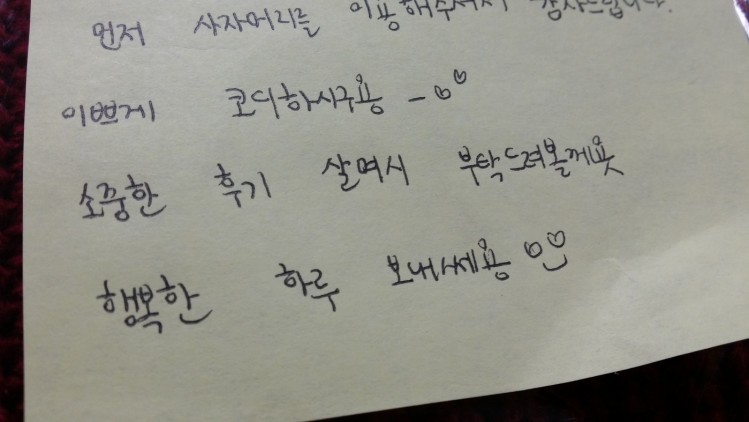 먼저 사자머리를 이용해주셔서 감사드립니다.
이쁘게 코디하시구용 - ♡♡
소중한 후기 살며시 부탁드려볼께욧
행복한 하루 보내세용 ♡♡